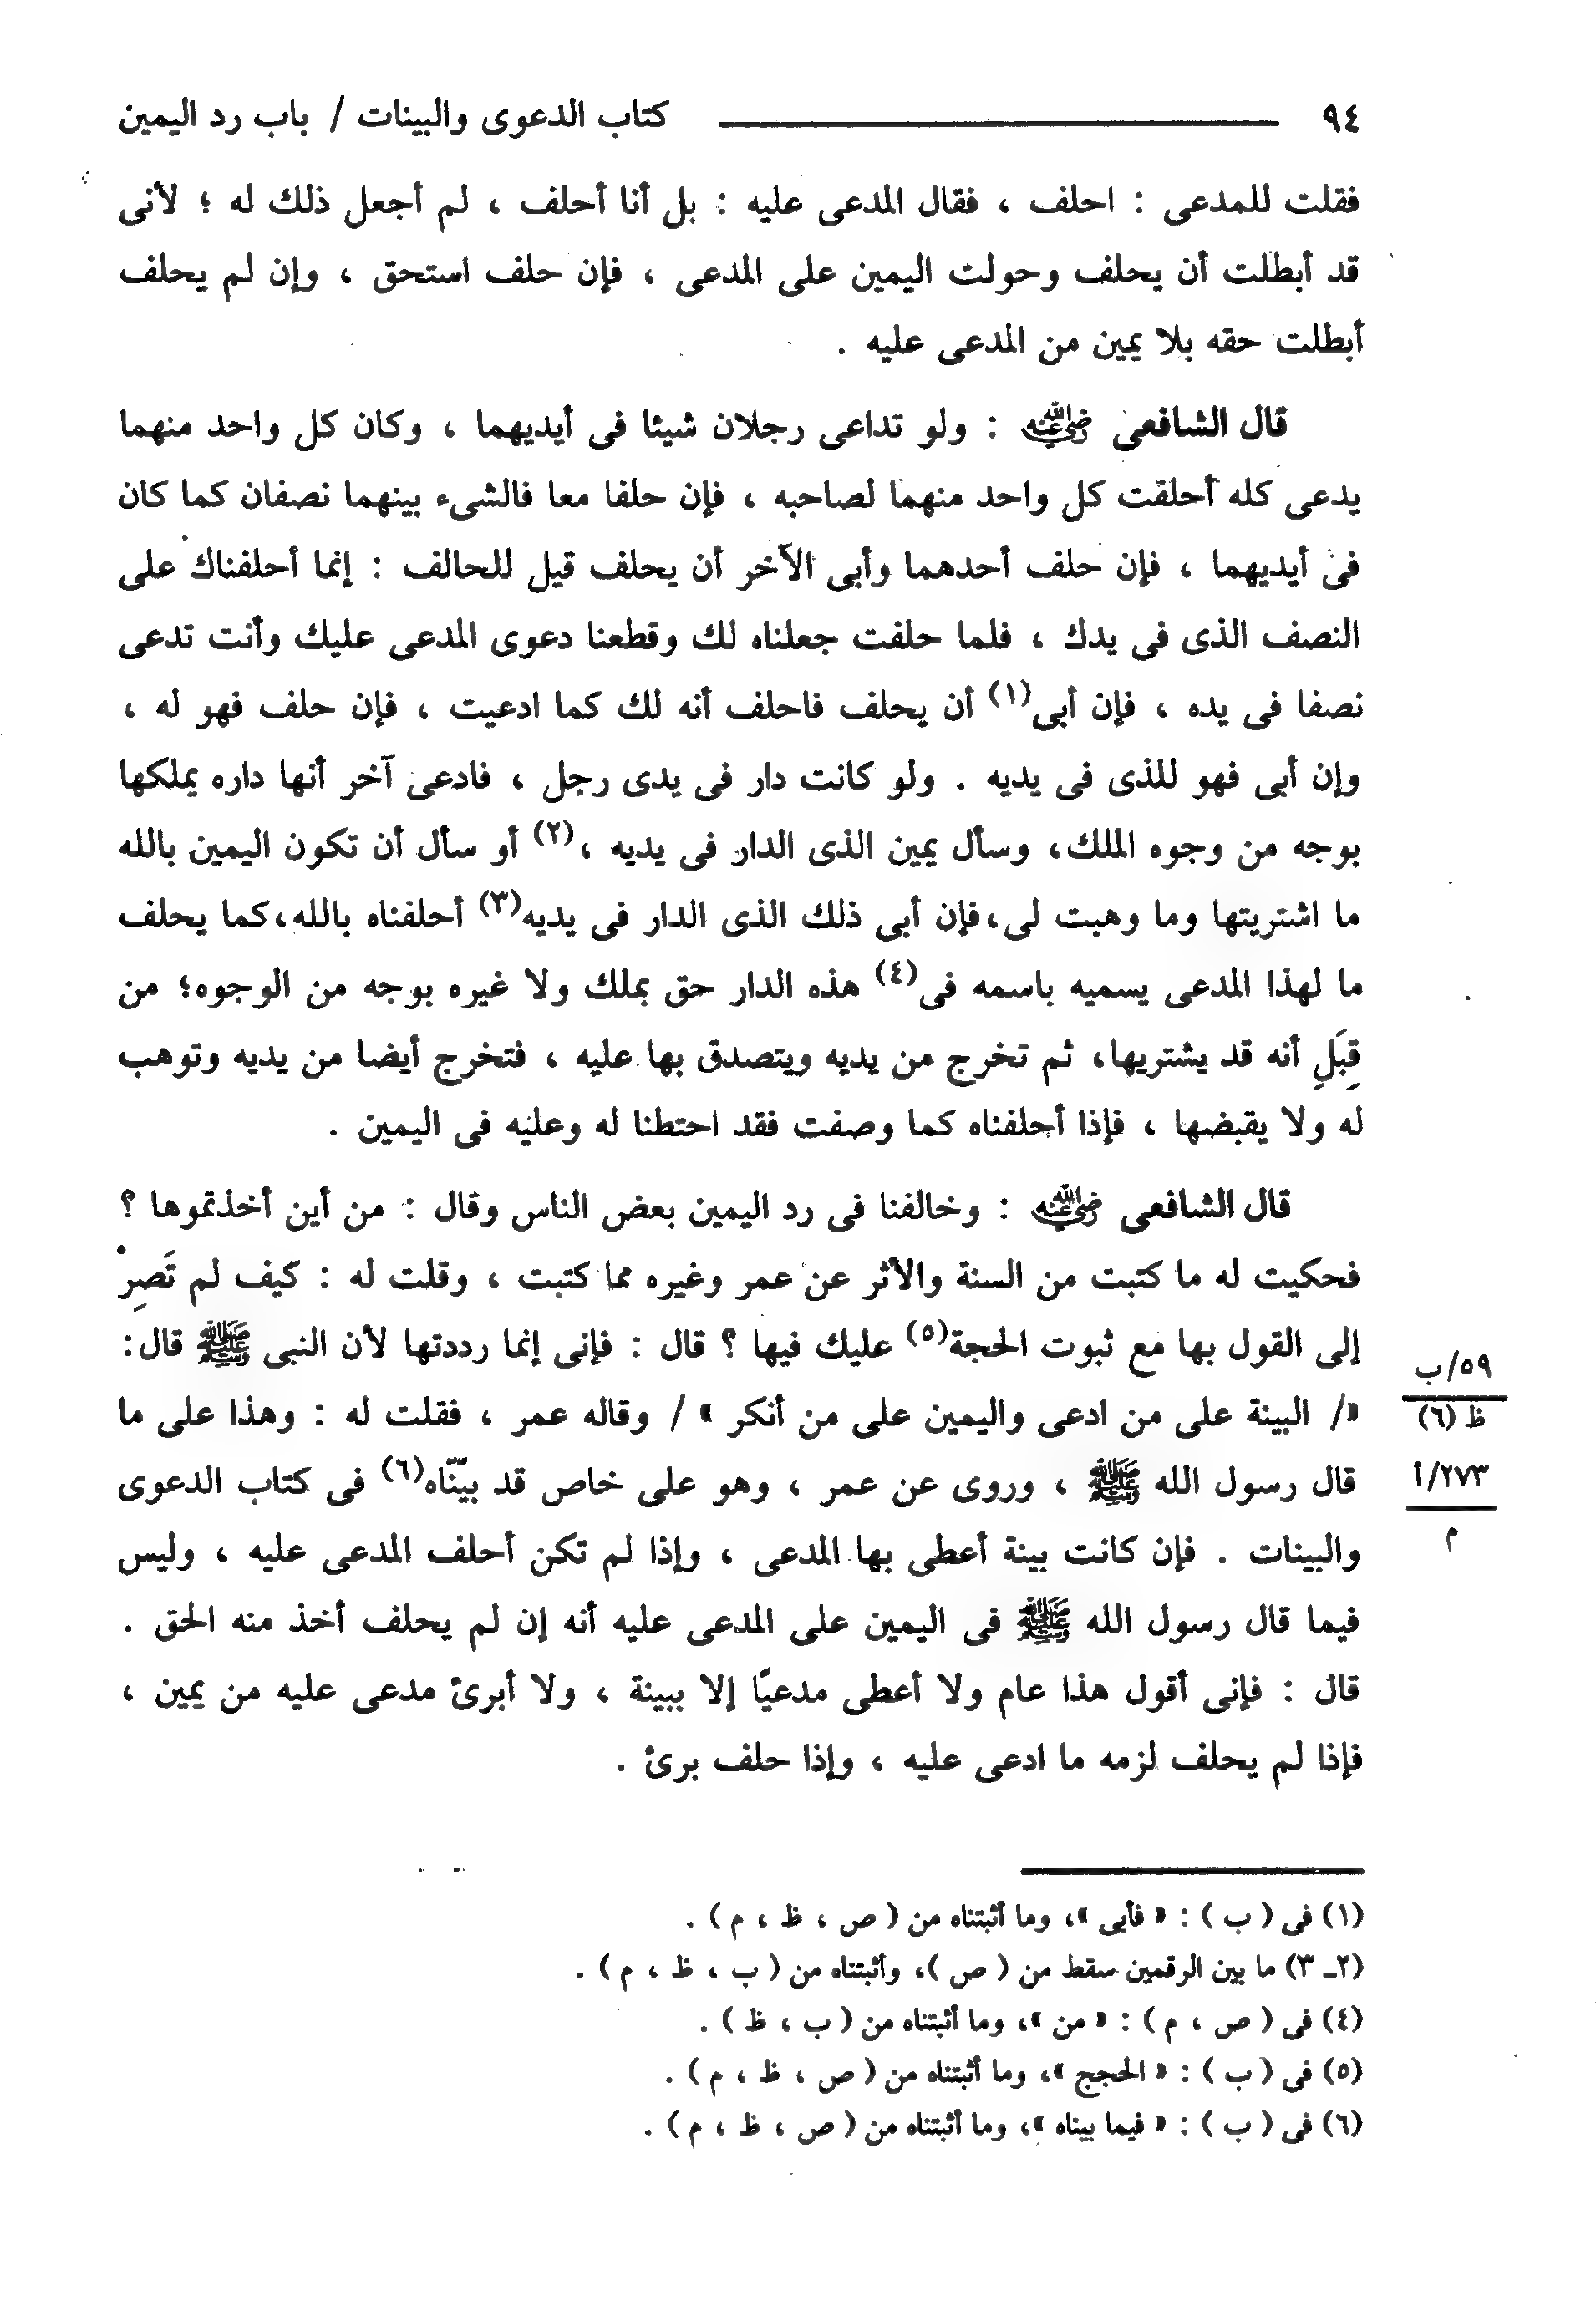 ٩٤ كتاب الدعوى والبينات / باب رد اليمين
فقلت للمدعى : احلف ، فقال المدعى عليه : بل أنا أحلف ، لم أجعل ذلك له ؛ لأنى
قد أبطلت أن يحلف وحولت اليمين على المدعى ، فإن حلف استحق ، وإن لم يحلف
أبطلت حقه بلا يمين من المدعى عليه .
قال الشافعى رضي الله عنه : ولو تداعى رجلان شيئا فى أيديهما ، وكان كل واحد منهما
يدعى كله أحلفت كل واحد منهما لصاحبه ، فإن حلفا معا فالشىء بينهما نصفان كما كان
فى أيديهما ، فإن حلف أحدهما وأبى الآخر أن يحلف قيل للحالف : إنما أحلفناك على
النصف الذى فى يدك ، فلما حلفت جعلناه لك وقطعنا دعوى المدعى عليك وأنت تدعى
نصفا فى يده ، فإن أبى(١) أن يحلف فاحلف أنه لك كما ادعيت ، فإن حلف فهو له ،
وإن أبى فهو للذى فى يديه . ولو كانت دار فى يدى رجل ، فادعى آخر أنها داره يملكها
بوجه من وجوه الملك، وسأل يمين الذى الدار فى يديه ،(٢) أو سأل أن تكون اليمين بالله
ما اشتريتها وما وهبت لى،فإن أبى ذلك الذى الدار فى يديه(٣) أحلفناه بالله،كما يحلف
ما لهذا المدعى يسميه باسمه فى(٤) هذه الدار حق بملك ولا غيره بوجه من الوجوه؛ من
قِبَلِ أنه قد يشتريها، ثم تخرج من يديه ويتصدق بها عليه ، فتخرج أيضا من يديه وتوهب
له ولا يقبضها ، فإذا أحلفناه كما وصفت فقد احتطنا له وعليه فى اليمين .
قال الشافعى رضي الله عنه : وخالفنا فى رد اليمين بعض الناس وقال : من أين أخذتموها ؟
فحكيت له ما كتبت من السنة والأثر عن عمر وغيره مما كتبت ، وقلت له : كيف لم تَصِرْ
إلى القول بها مع ثبوت الحجة(٥) عليك فيها ؟ قال : فإنى إنما رددتها لأن النبى ﷺ قال:
«/ البينة على من ادعى واليمين على من أنكر » / وقاله عمر ، فقلت له : وهذا على ما
قال رسول الله ﷺ ، وروى عن عمر ، وهو على خاص قد بيَّنَّاه(٦) فى كتاب الدعوى
والبينات . فإن كانت بينة أعطى بها المدعى ، وإذا لم تكن أحلف المدعى عليه ، وليس
فيما قال رسول الله ﷺ فى اليمين على المدعى عليه أنه إن لم يحلف أخذ منه الحق .
قال : فإنى أقول هذا عام ولا أعطى مدعيًا إلا ببينة ، ولا أبرئ مدعى عليه من يمين ،
فإذا لم يحلف لزمه ما ادعى عليه ، وإذا حلف برئ .
٥٩/ب
ظ (٦)
٢٧٣/أ
م
(١) فى ( ب ) : « فأبى »، وما أثبتناه من ( ص ، ظ ، م ) .
(٢ـ ٣) ما بين الرقمين سقط من ( ص )، وأثبتناه من ( ب ، ظ ، م ) .
(٤) فى ( ص ، م ) : « من »، وما أثبتناه من ( ب ، ظ ) .
(٥) فى ( ب ) : « الحجج »، وما أثبتناه من ( ص ، ظ ، م ) .
(٦) فى ( ب ) : « فيما بيناه »، وما أثبتناه من ( ص ، ظ ، م ) .